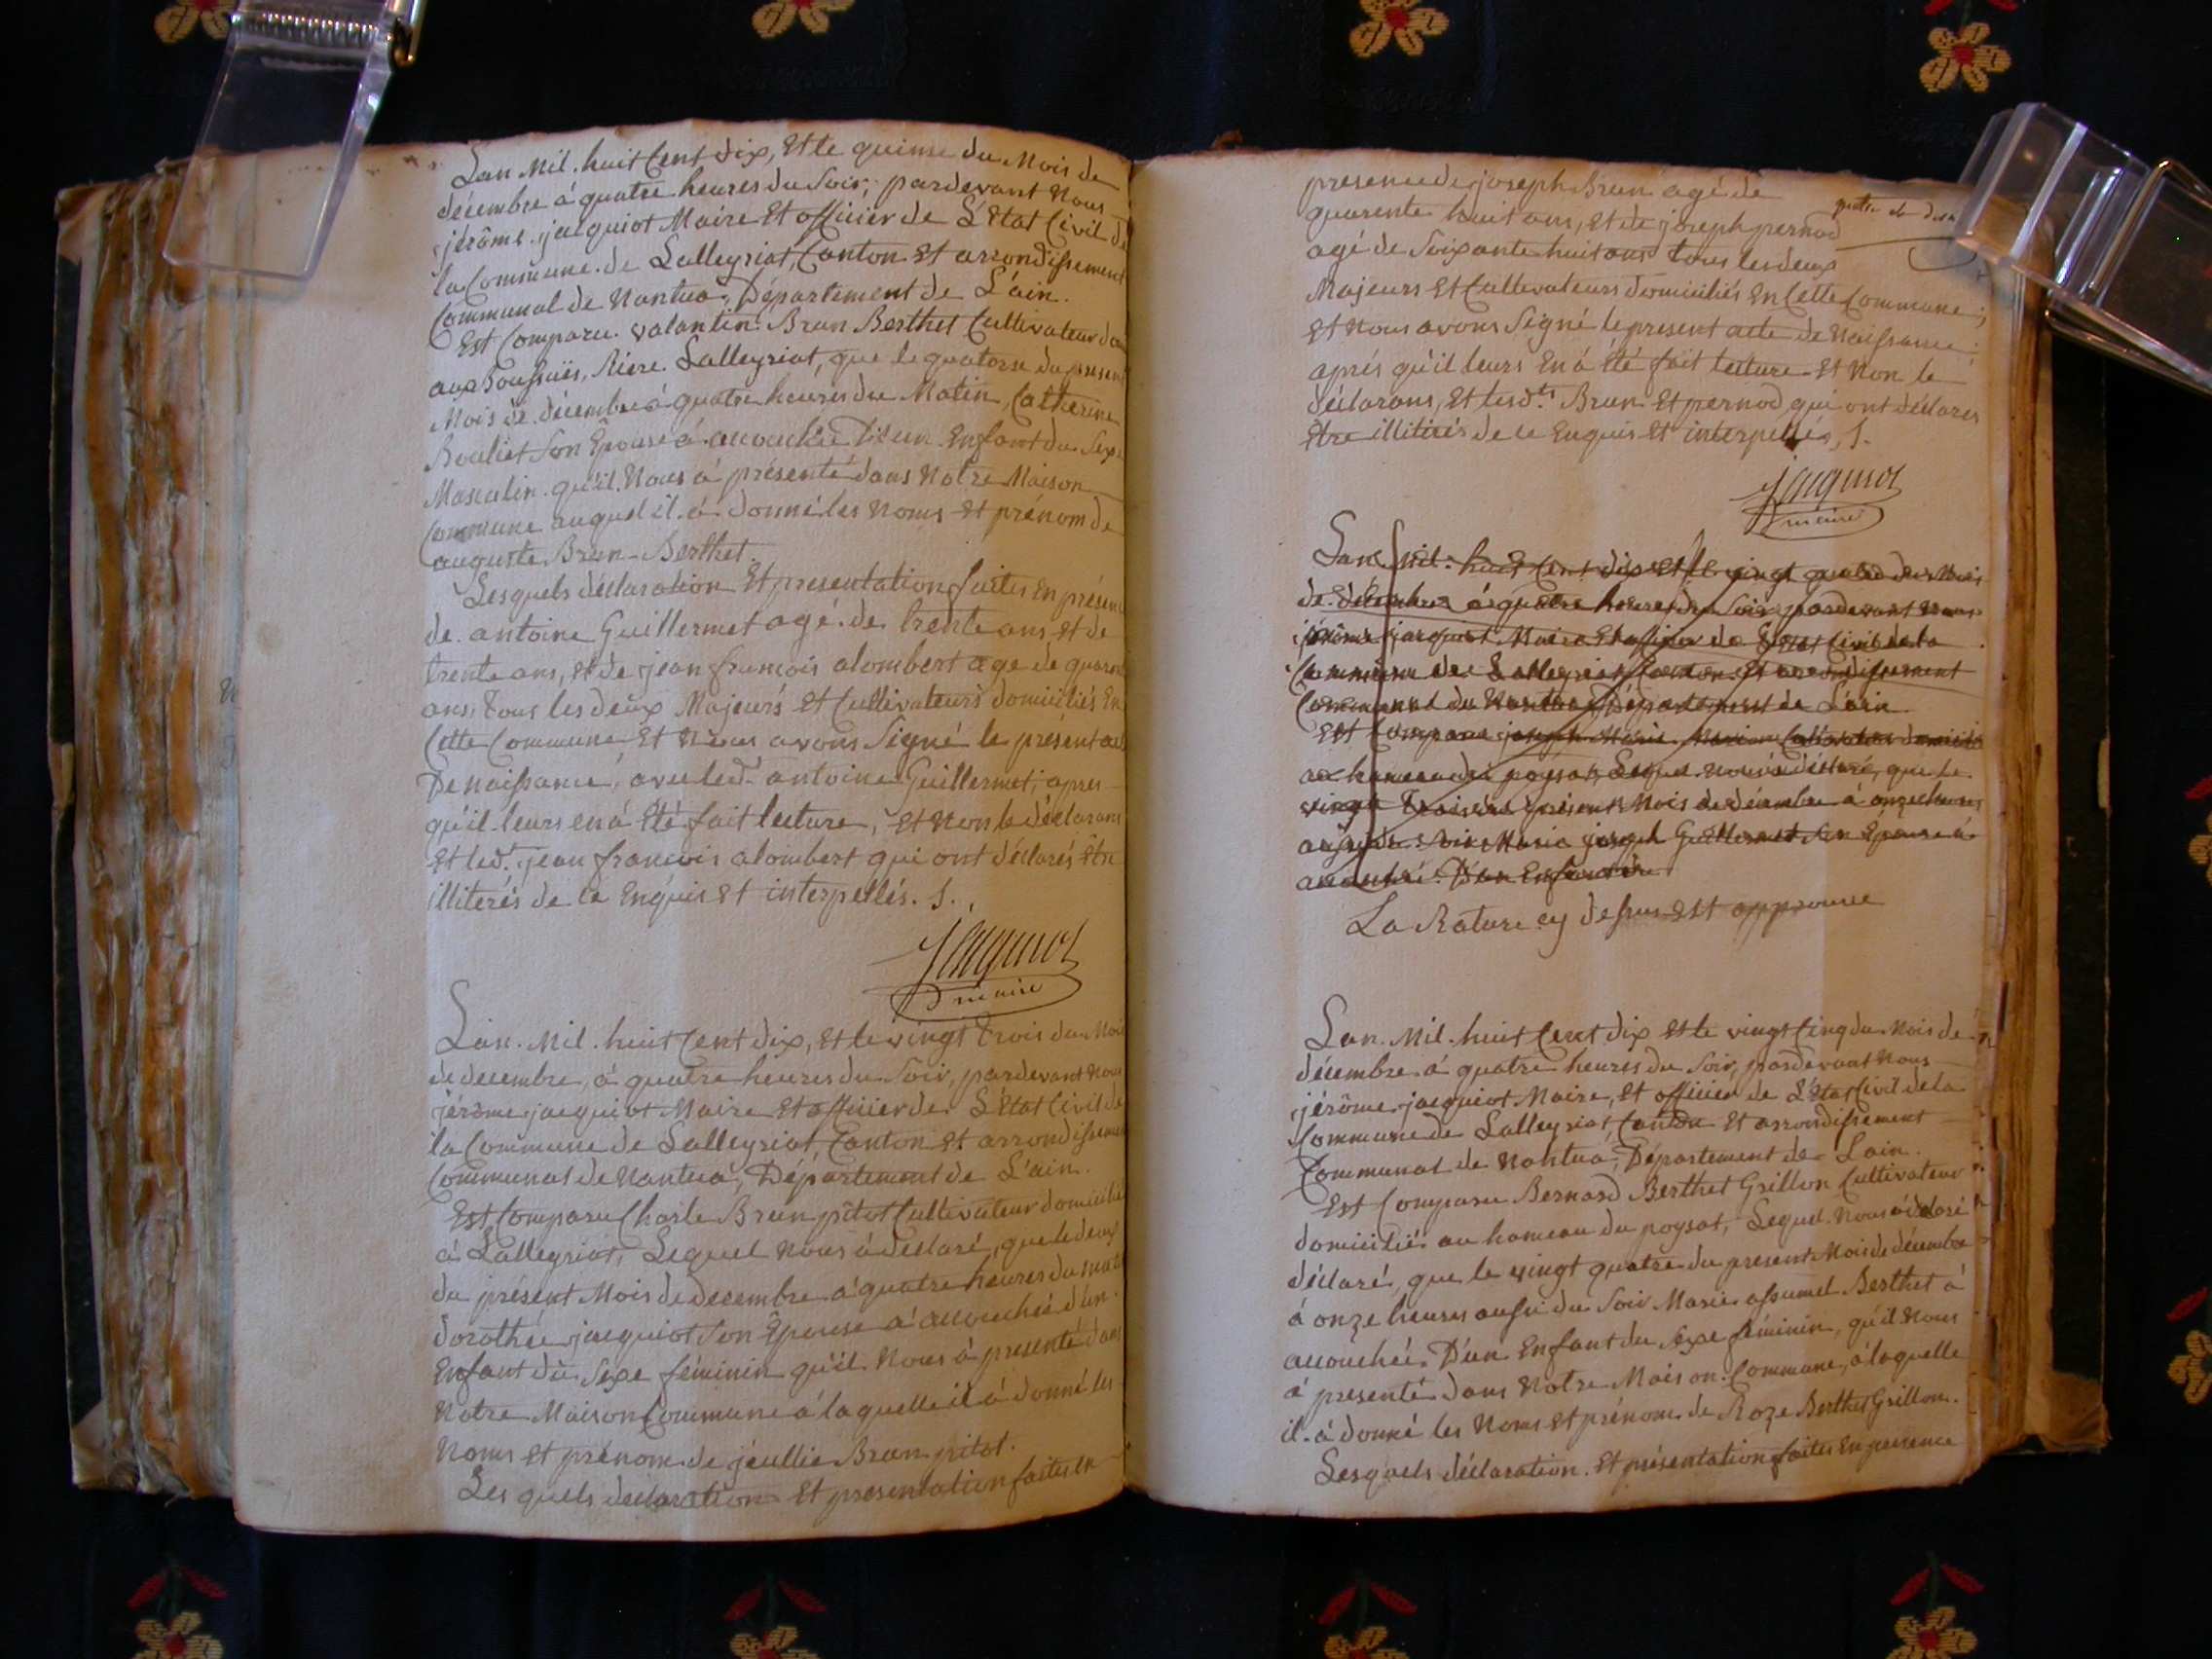 Lan Mil. huit Cent dix, Et le quinse du Mois de
décembre á quatre heures du Soir; pardevant Nous
jérôme jacquiot Maire Et officier de L'Etat Civil de
la Commune de Lalleyriat, Canton Et arrondissement
Communal de Nantua, Département de L'ain.
Est Comparu Valantin Brun Berthet Cultivateur
aux Riere Lalleyriat, que le quatorse du present
Mois de décembre á quatre heures du Matin, Catherine
Rouliet Son Épouse á accouchée D'un Enfant du Sexe
Masculin qu'il Nous á présenté dans Notre Maison
Commune auquel il á donné les Noms Et prénom de
auguste Brun-Berthet.
Lesquels déclaration Et presentation faites En présence
de antoine Guillermet agé de trente ans, et de
trente ans, et de jean francois alombert age de quarante
ans, tous les deux Majeurs et Cultivateurs domiciliés En
Cette Commune Et Nous avons Signé le présent acte
De naissance, avec led.t antoine Guillermet, apres
qu'il leurs en á Eté fait lecture, et Non le déclarans
Et led.t jean francois alombert qui ont déclarés être
illiterés de ce Enquis Et interpellés. J.
Jacquiot
maire
Lan. Mil. huit Cent dix, et le vingt trois du Mois
de decembre, á quatre heures du Soir, pardevant Nous
jérôme jacquiot Maire Et officier de L'Etat Civil de
la Commune de Lalleyriat, Canton et arrondissement
Communal de Nantua, Département de L'ain.
Est Comparu Charle Brun pitot Cultivateur domicilié
á Lalleyriat, Lequel Nous á déclaré, que le deux
du présent Mois de decembre á quatre heures du matin
dorothée jacquiot Son Épouse á accouchée d'un
Enfant du Sexe féminin qu'il Nous á presenté dans
Notre Maison Commune á laquelle il á donné les
Noms Et prénom de jéullie Brun pitot.
Les quels declaration Et presentation faites En
presence de joseph Brun agé de
quarente huit ans, et de joseph pernod
agé de Soixante huit ans tous les deux
Majeurs Et Cultivateurs domiciliés En Cette Commune;
Et Nous avons Signé le present acte de Naissance;
aprés qu'il leurs En á Eté fait lecture Et Non le
déclarans, Et lesd.ts Brun Et pernod qui ont déclarés
Etre illiterés de ce Enquis Et interpellés, J.
Jacquiot
maire
Lan Mil. huit Cent dix Et le vingt quatre du Mois
de décembre á quatre heures du Soir pardevant Nous
jérôme jacquiot Maire Et officier de L'Etat Civil de la
Commune de Lalleyriat Canton Et arrondissement
Communal de Nantua, Département de L'ain
Est Comparu joseph Marie Cultivateur domicilié
au hameau du poysat, Lequel Nous á déclaré, que le
vingt trois du présent Mois de décembre á onze heures
du Soir Marie joseph Guillermet Son Épouse á
accouchée D'un Enfant du
La Rature cy dessus Est approuvée
Lan. Mil. huit Cent dix Et le vingt Cinq du Mois de
décembre á quatre heures du Soir, pardevant Nous
jérôme jacquiot Maire, Et officier de L'Etat Civil de la
Commune de Lalleyriat Canton Et arrondissement
Communal de Nantua, Département de Lain.
Est Comparu Bernard Berthet Grillon Cultivateur
domicilié au hameau du poysat, Lequel Nous á déclaré
déclaré, que le vingt quatre du present Mois de décembre
á onze heures aussi du Soir Marie assumel Berthet á
accouchée D'un Enfant du Sexe féminin, qu'il Nous
á presenté dans Notre Maison Commune, á laquelle
il á donné les Noms Et prénom de Roze Berthet Grillon.
Lesquels déclaration Et présentation faites En presence